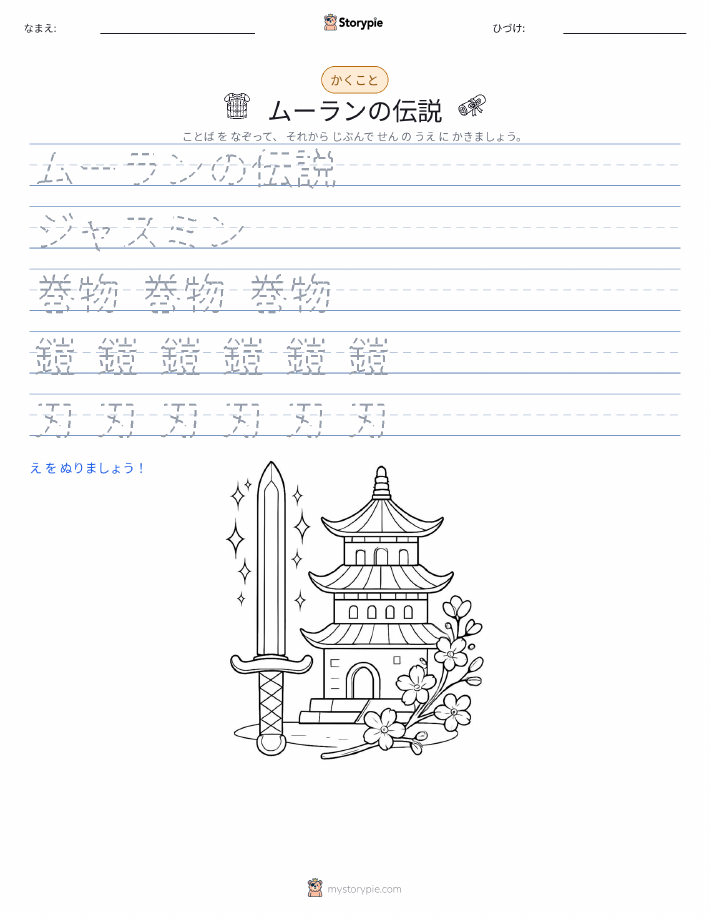 なまえ:
Storypie
ひづけ:
かくこと
ムーランの伝説
ことば を なぞって、 それから じぶんで せん の うえ に かきましょう。
ムーランの伝説
ジャスミン
巻物 巻物 巻物
鎧 鎧 鎧 鎧 鎧 鎧
刃 刃 刃 刃 刃 刃
え を ぬりましょう！
mystorypie.com